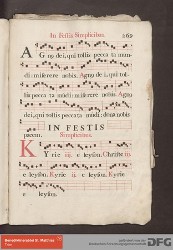 In Festis Simplicibus. 269
AGnus dei, qui tollis pecca ta mun
di: miserere nobis. Agnus dei, qui tol
lis pecca ta mundi: miserere nobis. Agnus
dei, qui tollis peccata mundi: dona nobis
pacem. IN FESTIS
Simplicibus.
KYrie ii. e leyson. Christe iii.
e leyson. Kyrie ii. e leyson. Kyrie
e leyson.
DFG